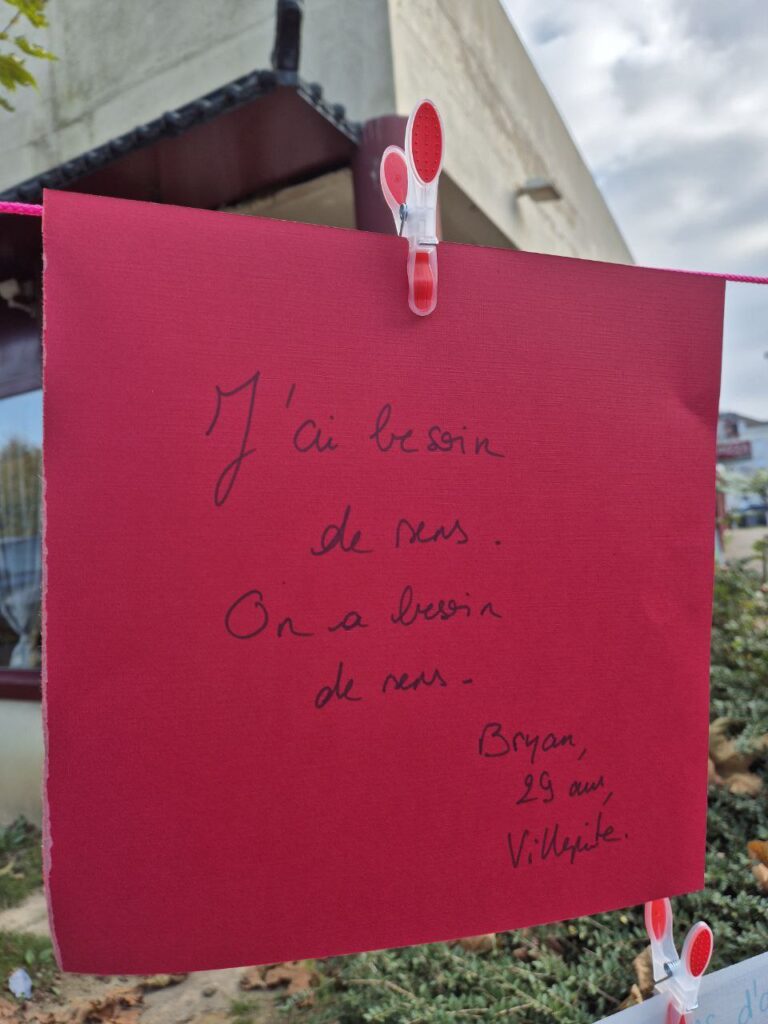 J'ai besoin
de sens.
On a besoin
de sens.
Bryan,
29 ans,
Villepinte.